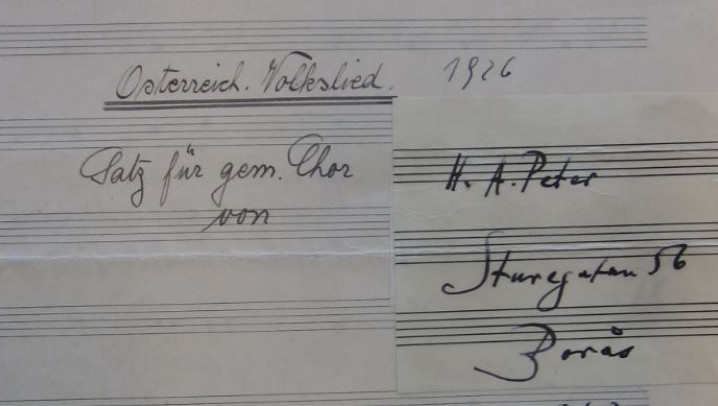 Österreich. Volkslied. 1926
Satz für gem. Chor
von
H. A. Peter
Sturegatan 56
Borås